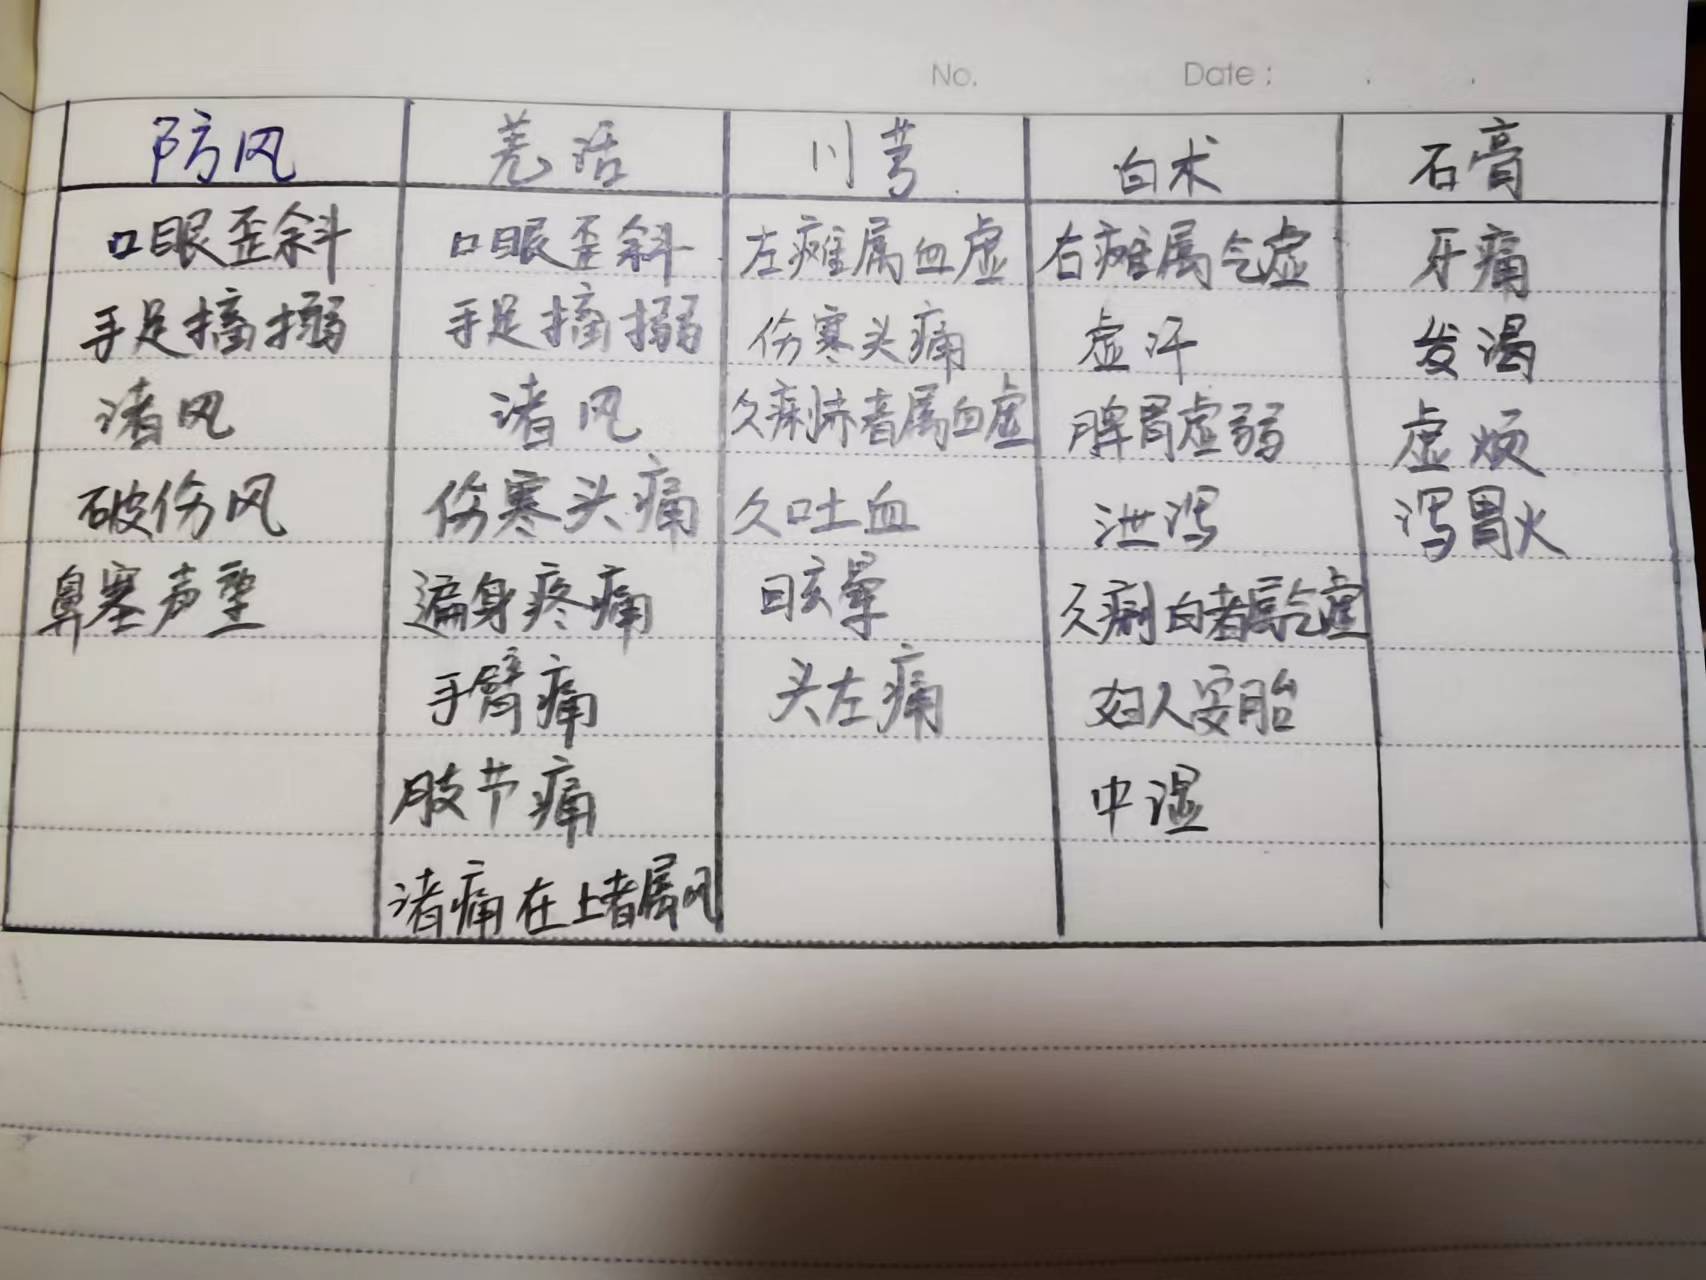 No. Date : . .
防风 羌活 川芎 白术 石膏
口眼歪斜 口眼歪斜 左瘫属血虚 右瘫属气虚 牙痛
手足搐搦 手足搐搦 伤寒头痛 虚汗 发渴
诸风 诸风 久痢赤者属血虚 脾胃虚弱 虚烦
破伤风 伤寒头痛 久吐血 泄泻 泻胃火
鼻塞声重 遍身疼痛 眩晕 久痢白者属气虚
手臂痛 头左痛 妇人安胎
肢节痛 中湿
诸痛在上者属风